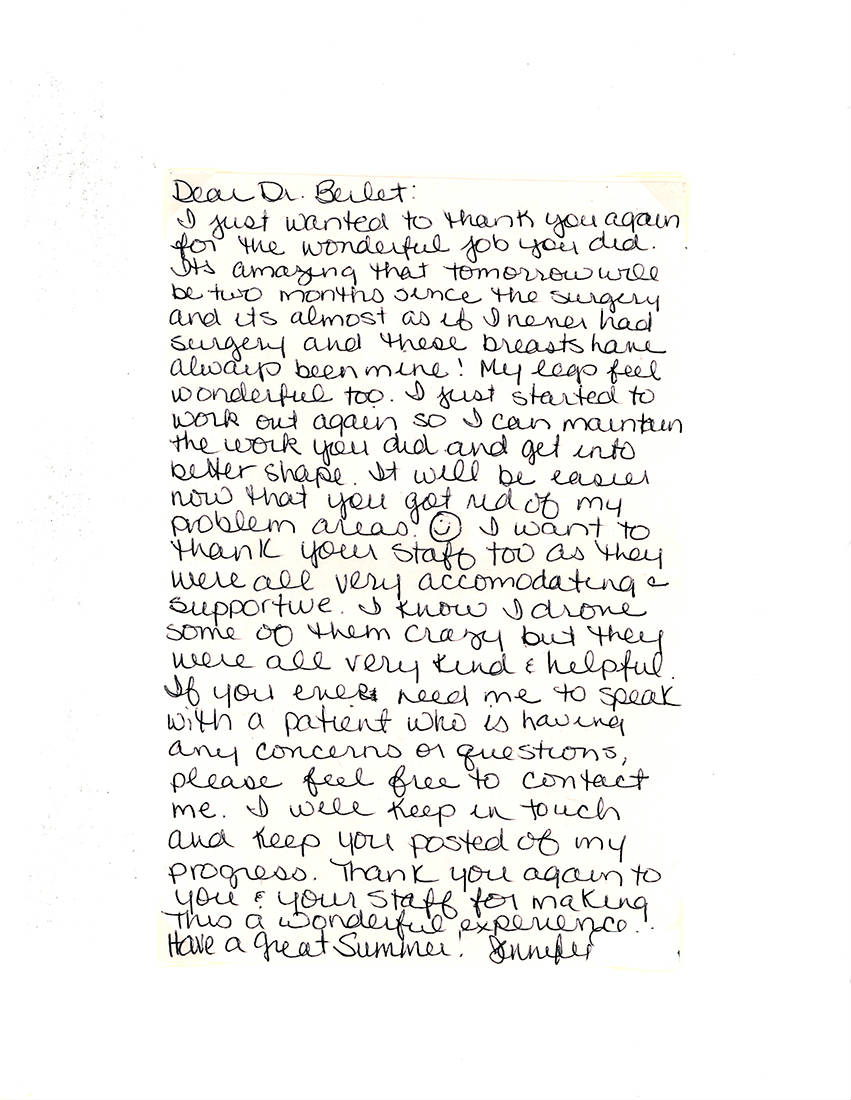 Dear Dr. Berlet:
I just wanted to thank you again
for the wonderful job you did.
Its amazing that tomorrow will
be two months since the surgery
and its almost as if I never had
surgery and these breasts have
always been mine! My legs feel
wonderful too. I just started to
work out again so I can maintain
the work you did and get into
better shape. It will be easier
now that you got rid of my
problem areas. ☺ I want to
thank your staff too as they
were all very accomodating &
supportive. I know I drove
some of them crazy but they
were all very kind & helpful.
If you ever need me to speak
with a patient who is having
any concerns or questions,
please feel free to contact
me. I will keep in touch
and keep you posted of my
progress. Thank you again to
you & your staff for making
this a wonderful experience.
Have a great Summer! Jennifer